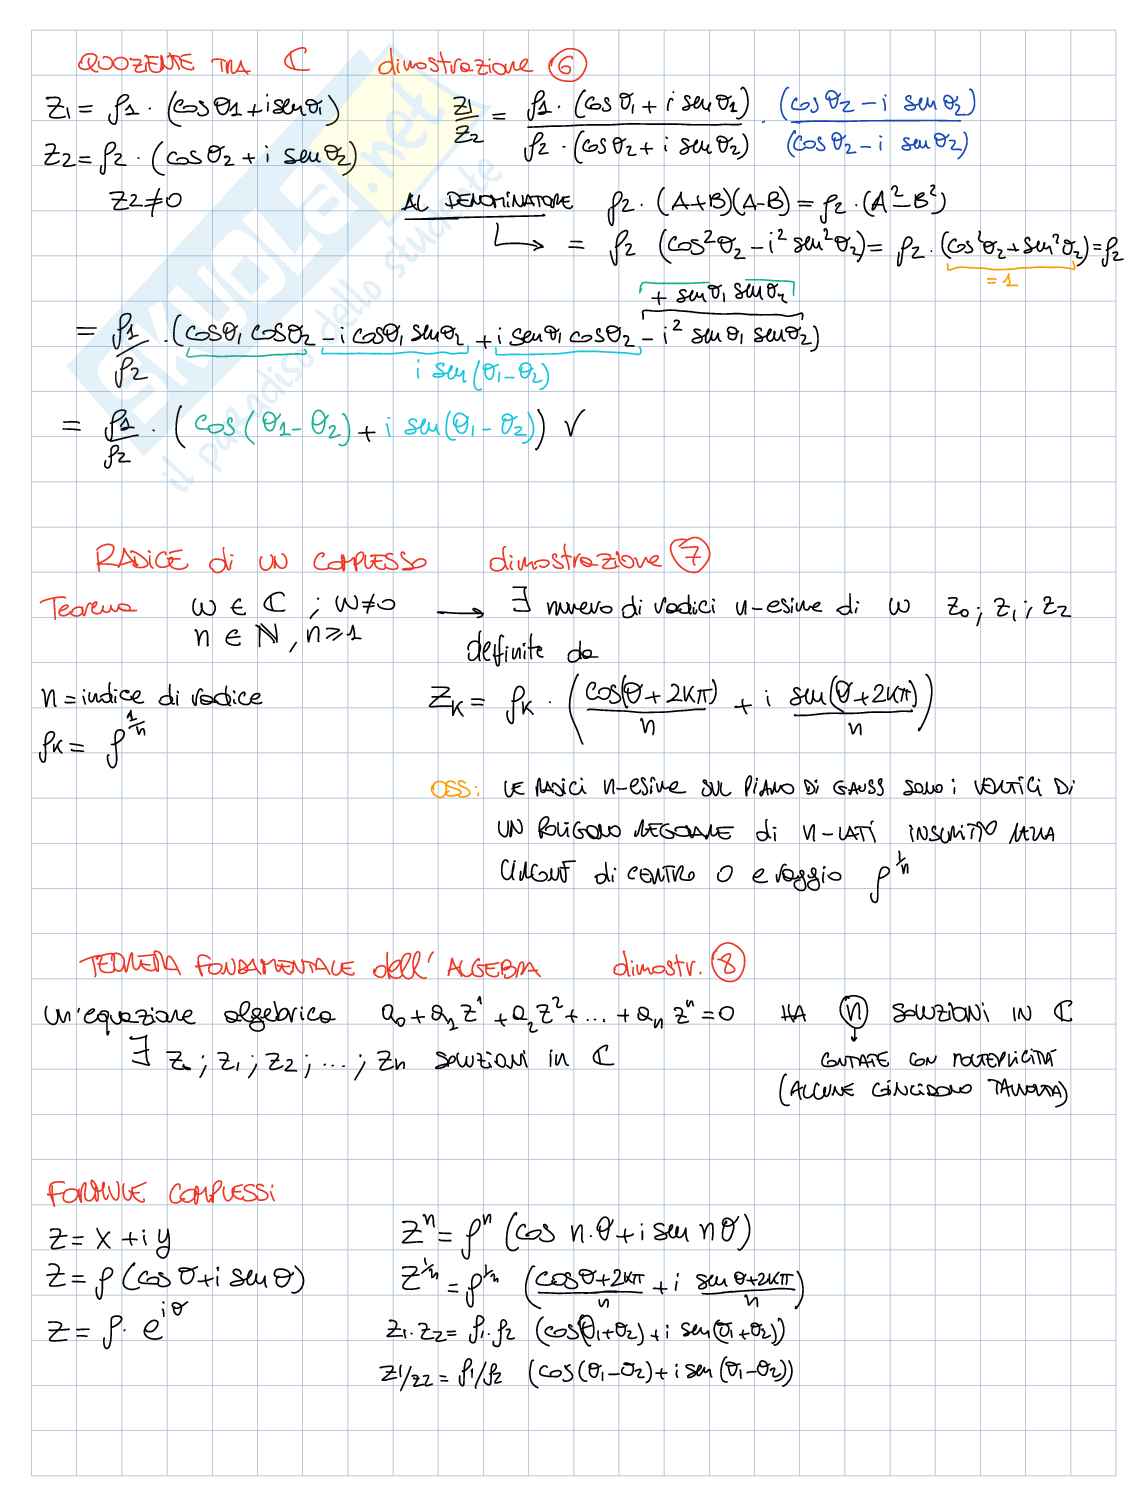 QUOZIENTE TRA ℂ dimostrazione ⑥
z1 = ρ1 · (cosθ1 + i senθ1)
z2 = ρ2 · (cosθ2 + i senθ2)
z2 ≠ 0
z1/z2 = ρ1 · (cosθ1 + i senθ1) / ρ2 · (cosθ2 + i senθ2) · (cosθ2 − i senθ2) / (cosθ2 − i senθ2)
AL DENOMINATORE ρ2 · (A+B)(A−B) = ρ2 · (A² − B²)
= ρ2 (cos²θ2 − i² sen²θ2) = ρ2 · (cos²θ2 + sen²θ2) = ρ2
= 1
+ senθ1 senθ2
= ρ1/ρ2 · (cosθ1 cosθ2 − i cosθ1 senθ2 + i senθ1 cosθ2 − i² senθ1 senθ2)
i sen(θ1 − θ2)
= ρ1/ρ2 · (cos(θ1 − θ2) + i sen(θ1 − θ2)) √
RADICE di UN COMPLESSO dimostrazione ⑦
Teorema w ∈ ℂ ; w ≠ 0 → ∃ numero di radici n-esime di w z0 ; z1 ; z2
n ∈ ℕ, n ≥ 1 definite da
n = indice di radice
ρk = ρ^1/n
zk = ρk · (cos(θ + 2kπ)/n + i sen(θ + 2kπ)/n)
OSS: LE RADICI n-esime SUL PIANO DI GAUSS SONO i VERTICI DI
UN POLIGONO REGOLARE di n-LATI INSCRITTO NELLA
CIRCONF di CENTRO O e raggio ρ^1/n
TEOREMA FONDAMENTALE dell' ALGEBRA dimostr. ⑧
un'equazione algebrica a0 + a1 z¹ + a2 z² + ... + an zⁿ = 0 HA ⓝ SOLUZIONI IN ℂ
∃ z0 ; z1 ; z2 ; ... ; zn SOLUZIONI in ℂ
CONTATE CON MOLTEPLICITÀ
(ALCUNE COINCIDONO TALVOLTA)
FORMULE COMPLESSI
z = x + iy
z = ρ (cosθ + i senθ)
z = ρ · e^iθ
zⁿ = ρⁿ (cos n·θ + i sen nθ)
z^1/n = ρ^1/n (cosθ+2kπ/n + i senθ+2kπ/n)
z1·z2 = ρ1·ρ2 (cos(θ1+θ2) + i sen(θ1+θ2))
z1/z2 = ρ1/ρ2 (cos(θ1−θ2) + i sen(θ1−θ2))
SKUOLA.net
il paradiso dello studente